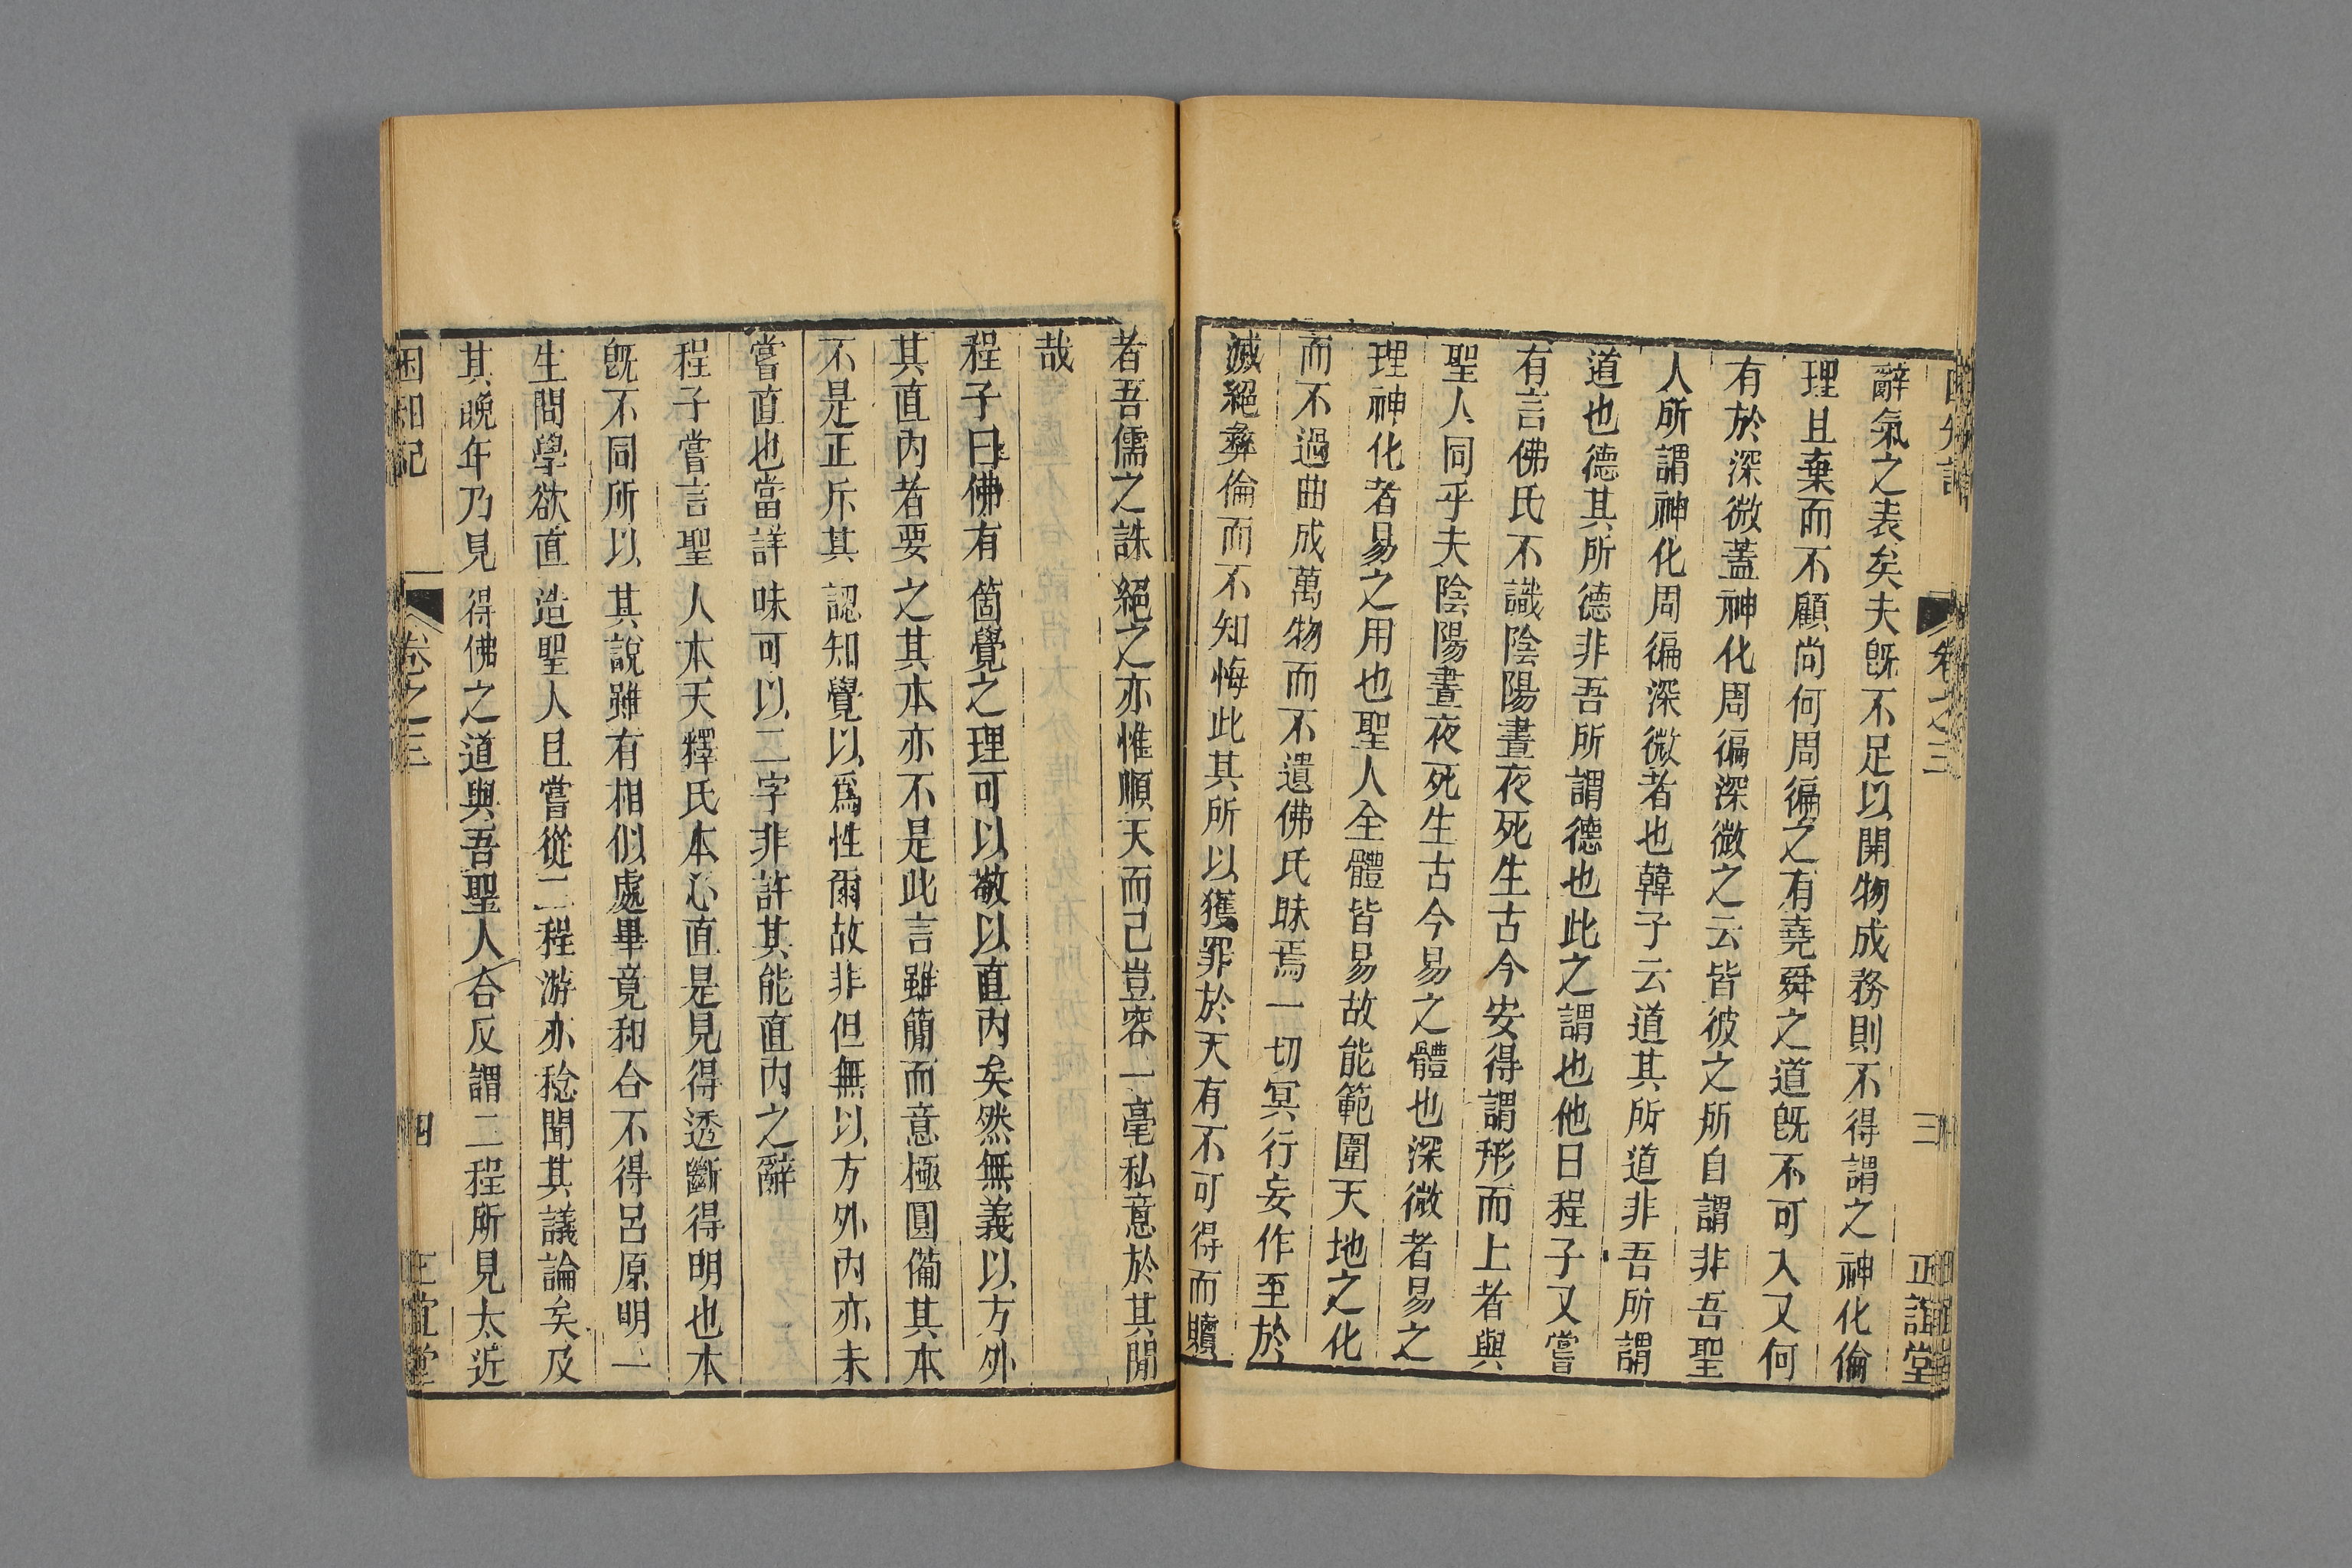 卷之三
三
正誼堂
辭氣之表矣夫旣不足以開物成務則不得謂之神化倫
理且棄而不顧尚何周徧之有堯舜之道旣不可入又何
有於深微蓋神化周徧深微之云皆彼之所自謂非吾聖
人所謂神化周徧深微者也韓子云道其所道非吾所謂
道也德其所德非吾所謂德也此之謂也他日程子又嘗
有言佛氏不識陰陽晝夜死生古今安得謂形而上者與
聖人同乎夫陰陽晝夜死生古今易之體也深微者易之
理神化者易之用也聖人全體皆易故能範圍天地之化
而不過曲成萬物而不遺佛氏昧焉一切冥行妄作至於
滅絕彝倫而不知悔此其所以獲罪於天有不可得而贖
者吾儒之誅絕之亦惟順天而己豈容一毫私意於其閒
哉
程子曰佛有箇覺之理可以敬以直內矣然無義以方外
其直內者要之其本亦不是此言雖簡而意極圓備其本
不是正斥其認知覺以爲性爾故非但無以方外內亦未
嘗直也當詳味可以二字非許其能直內之辭
程子嘗言聖人本天釋氏本心直是見得透斷得明也本
旣不同所以其說雖有相似處畢竟和合不得呂原明一
生問學欲直造聖人且嘗從二程游亦稔聞其議論矣及
其晚年乃見得佛之道與吾聖人合反謂二程所見太近
困知記
卷之三
四
正誼堂